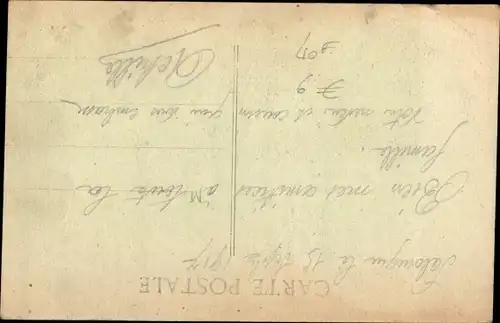 CARTE POSTALE
Salonique le 15 Sept 1917
Bien mes amitiés à toute la
famille.
Votre neveu et cousin qui vous embrasse
Achille